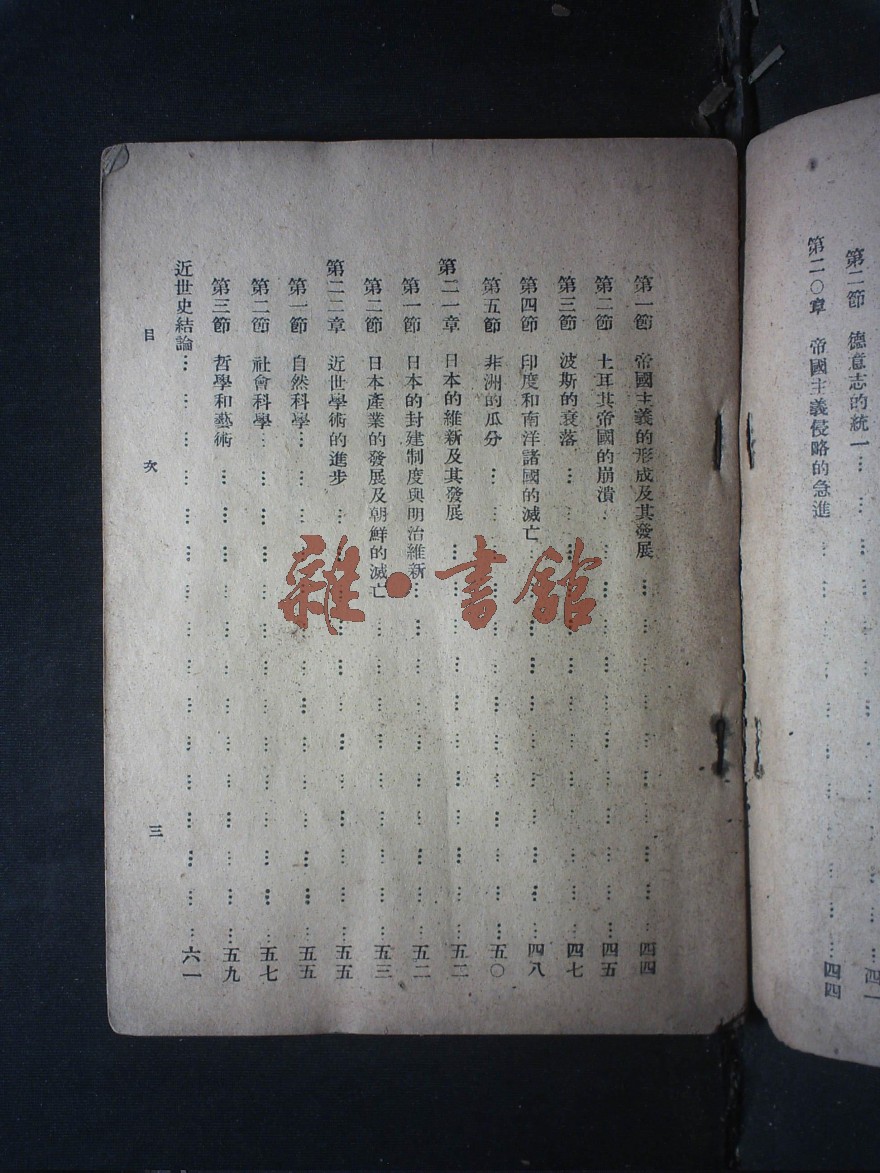 第二節　德意志的統一……四一
第二〇章　帝國主義侵略的急進……四四
第一節　帝國主義的形成及其發展……四四
第二節　土耳其帝國的崩潰……四五
第三節　波斯的衰落……四七
第四節　印度和南洋諸國的滅亡……四八
第五節　非洲的瓜分……五〇
第二一章　日本的維新及其發展……五二
第一節　日本的封建制度與明治維新……五二
第二節　日本產業的發展及朝鮮的滅亡……五三
第二二章　近世學術的進步……五五
第一節　自然科學……五五
第二節　社會科學……五七
第三節　哲學和藝術……五九
近世史結論……六一
目次　三
雜·書館